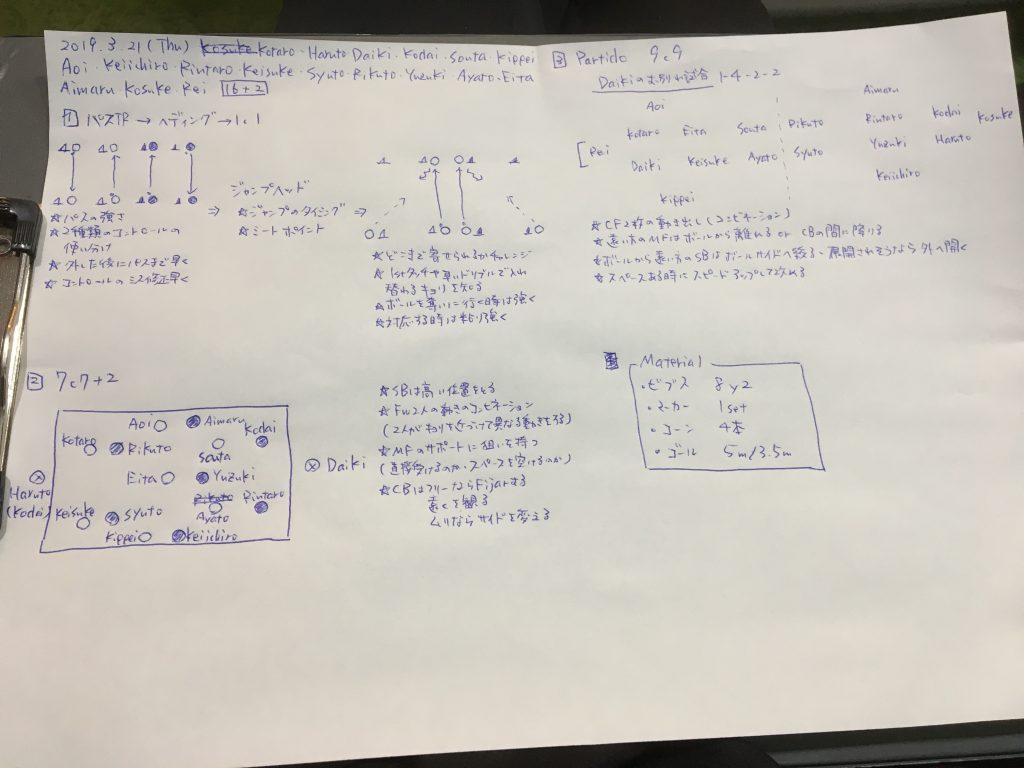 2019.3.21(Thu) Kosuke Kotaro・Haruto Daiki・Kodai・Souta・Kippei
Aoi・Keiichiro・Rintaro・Keisuke・Syuto・Rikuto・Yuzuki・Ayato・Eita
Aimaru・Kosuke・Rei 16+2
1 パスTR → ヘディング → 1c1
☆パスの強さ
☆2種類のコントロールの
使い分け
☆外した後にパスまで早く
☆コントロールのミス修正早く
⇒
ジャンプヘッド
☆ジャンプのタイミング
☆ミートポイント
⇒
☆どこまで寄せられるかチャレンジ
☆1stタッチや早いドリブルで入れ
替わるキョリを知る
☆ボールを奪いに行く時は強く
☆対応する時は粘り強く
2 7c7+2
Aoi
Aimaru
Kodai
Kotaro
Rikuto
Souta
Eita
Yuzuki
Haruto
(Kodai)
Daiki
Rikuto
Rintaro
Keisuke
Syuto
Ayato
Kippei
Keiichiro
☆SBは高い位置をとる
☆FW2人の動きのコンビネーション
(2人がキョリを近づけて異なる動きをする)
☆MFのサポートに狙いを持つ
(直接受けるのか、スペースを空けるのか)
☆CBはフリーならFijarする
遠くを観る
ムリならサイドを変える
3 Partido 9c9
Daikiのお別れ試合 1-4-2-2
Aoi
Kotaro Eita Souta Rikuto
Rei
Daiki Keisuke Ayato Syuto
Kippei
Aimaru
Rintaro Kodai Kosuke
Yuzuki Haruto
Keiichiro
☆CF2枚の動き出し(コンビネーション)
☆遠い方のMFはボールから離れる or CBの間に降りる
☆ボールから遠い方のSBはボールサイドへ絞る、展開されそうなら外へ開く
☆スペースある時にスピードアップして攻める
Material
・ビブス 8y2
・マーカー 1set
・コーン 4本
・ゴール 5m/3.5m